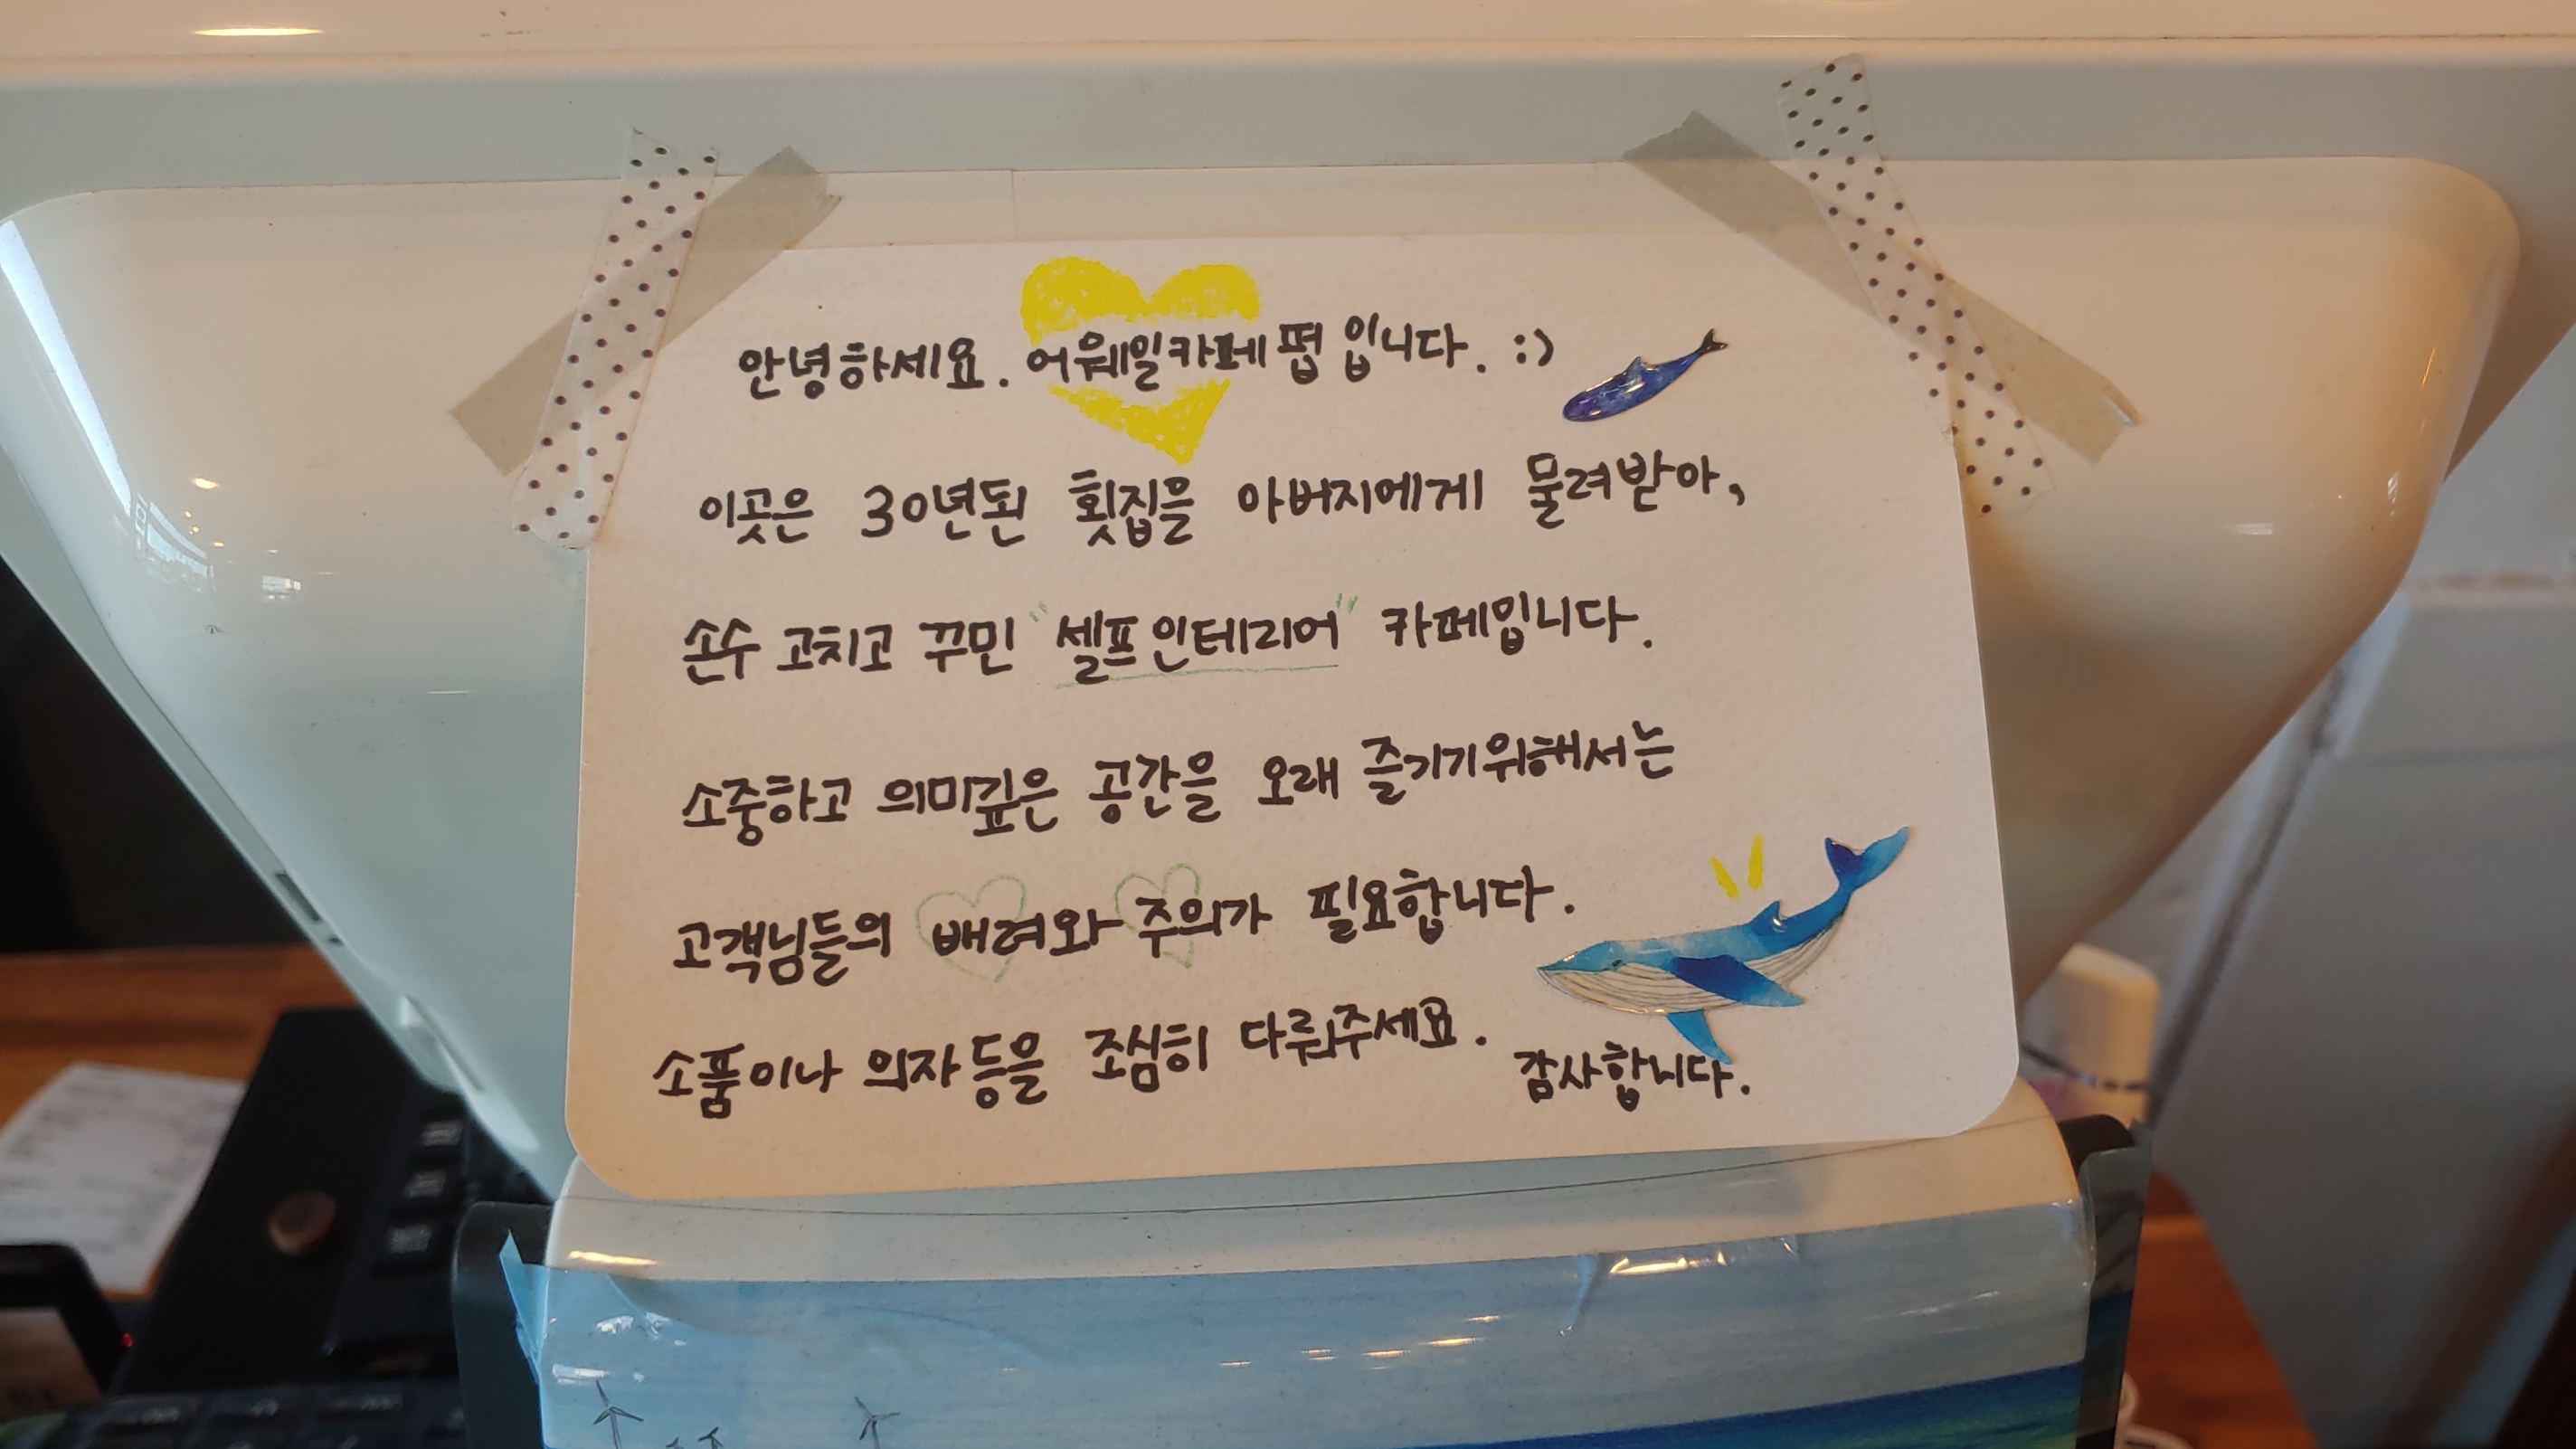 안녕하세요. 어웨일카페펍입니다. :)
이곳은 30년된 횟집을 아버지에게 물려받아,
손수 고치고 꾸민 "셀프인테리어" 카페입니다.
소중하고 의미깊은 공간을 오래 즐기기위해서는
고객님들의 배려와 주의가 필요합니다.
소품이나 의자등을 조심히 다뤄주세요.
감사합니다.